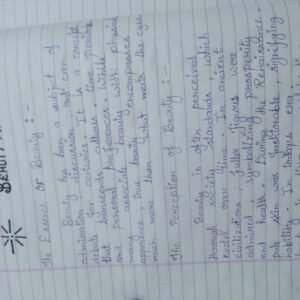 BEAUTY
The Essence of Beauty :-
Beauty has been a subject of
admiration, discussion and even
debate for centuries. It is a concept
that transcends cultures, time periods
and personal preferences. While
many associate beauty with physical
appearance, true beauty encompasses
much more than what meets the eye.
The Perception of Beauty :-
Beauty is often perceived
through societal standards, which
evolve over time. In ancient
civilizations, fuller figures were
admired, symbolizing prosperity
and health. During the Renaissance,
pale skin was fashionable, signifying
nobility. In today's era,